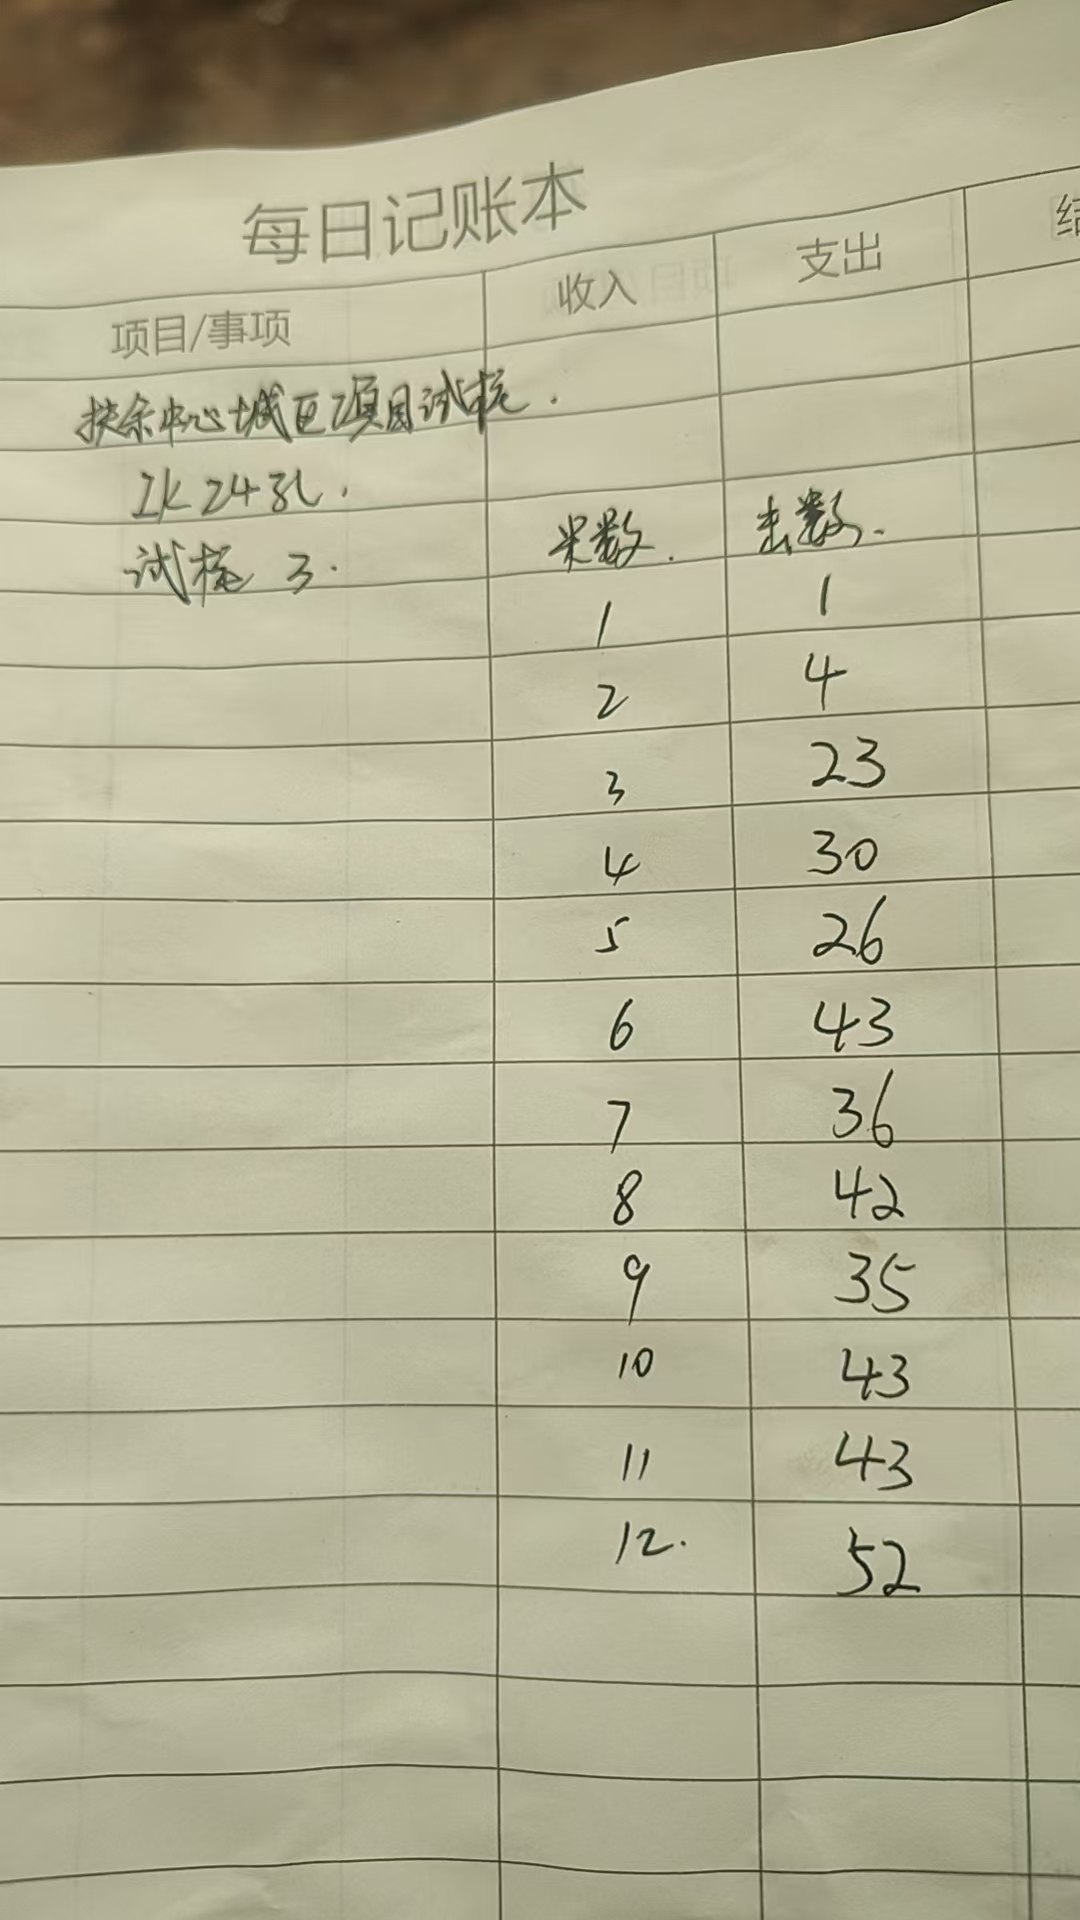 每日记账本
项目/事项 收入 支出 结
扶余中心城区项目试桩.
ZK24孔.
试桩 3. 米数. 击数.
1 1
2 4
3 23
4 30
5 26
6 43
7 36
8 42
9 35
10 43
11 43
12. 52